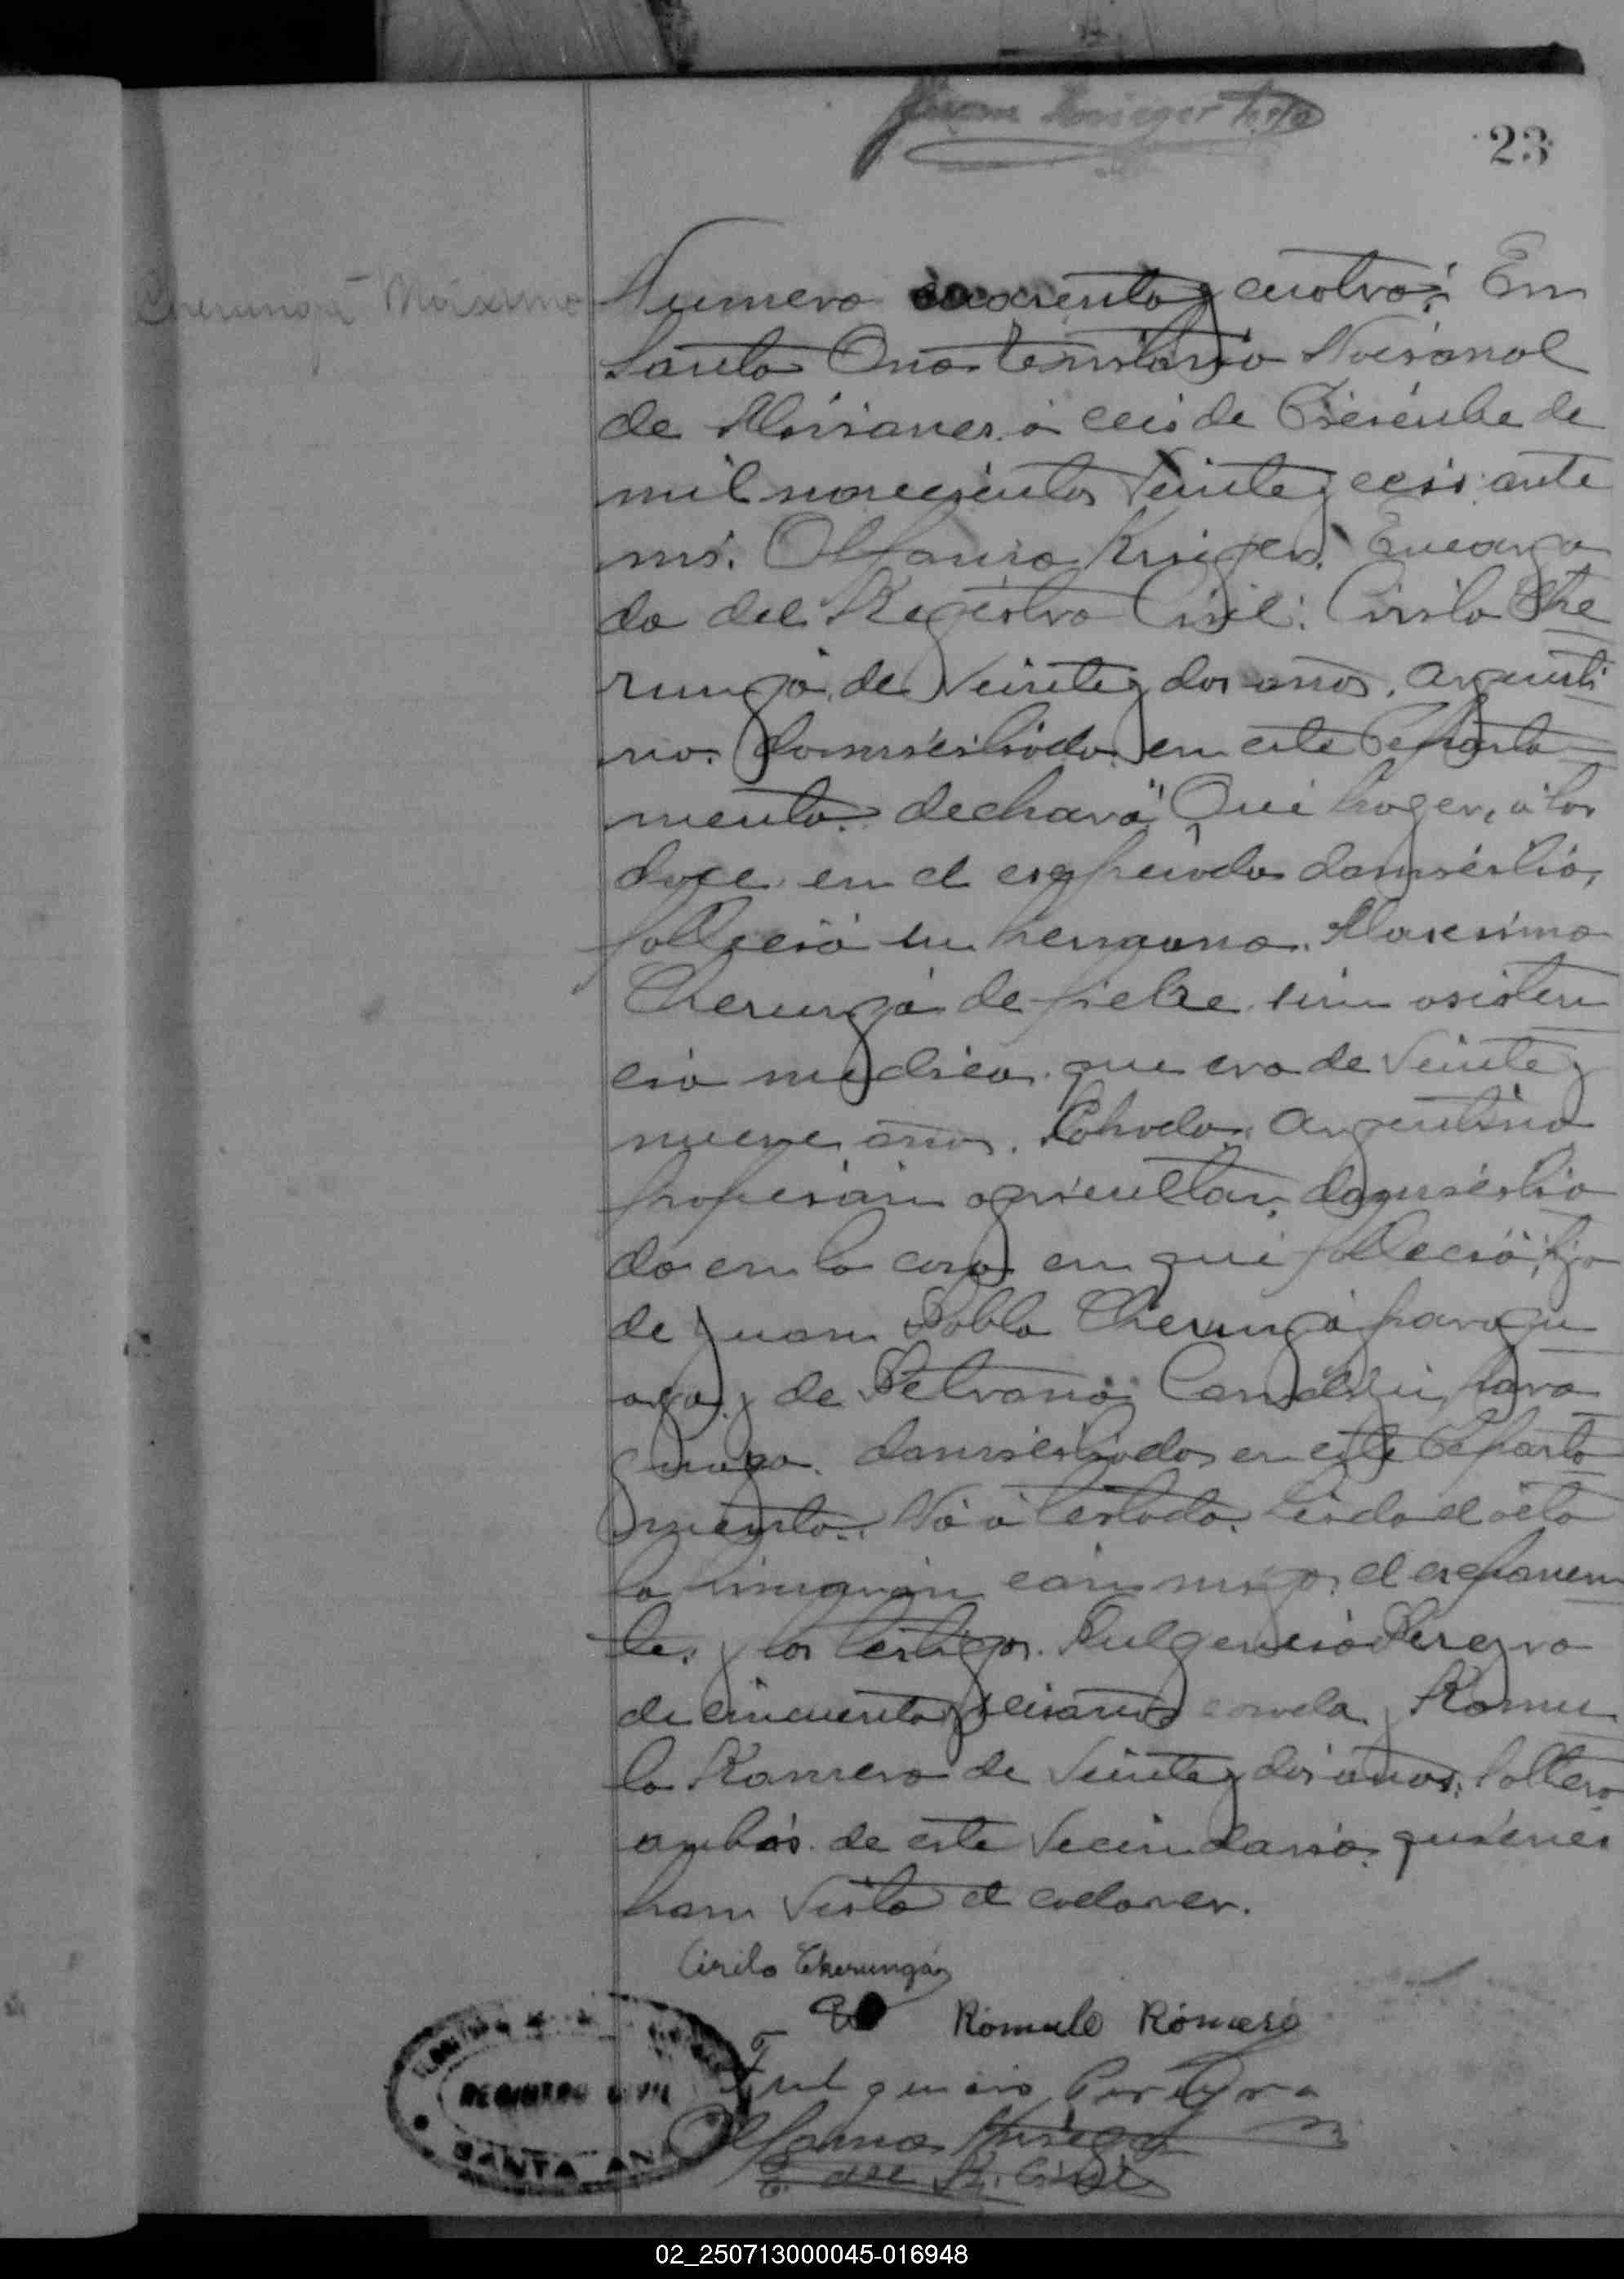 23
Cherungá Máximo
Numero cuarenta y cuatro: En
Santa Ana territorio Nacional
de Misiones, á ceis de Diciembre de
mil novecientos Veinte y ceis: ante
mi. Alfonso Kriger. Encarga
do del Registro Civil: Cirilo Che
rungá, de Veinte y dos años, Argenti
no. domiciliado en este Departa
mento. declaró: Qué hoy, á las
doce en el espresado domicilio,
fallició su hermano. Maximo
Cherungá de fiebre sin asisten
cia medica. que era de Veinte y
nueve años. Argentino
profesión agricultor, domicilia
do en la casa en que falleció, hijo
de Juan Pablo Cherungá paragu
ayo, y de Petrona para
guaya. domiciliados en este Departa
mento. No á testado. Leida el acta
la firmarón con migo, el exponen
te, y los testigos. Fulgencio Pereyra
de cincuenta y seis años y Romu
lo Romero de Veinte y dos años, Soltero
ambos de este Vecindario, quiénes
han Visto el cadaver.
Cirilo Cherungá
Rómulo Rómero
Fulgencio Pereyra
Alfonso Kriger
E. del R. Civil
REGISTRO CIVIL
SANTA ANA
02_250713000045-016948